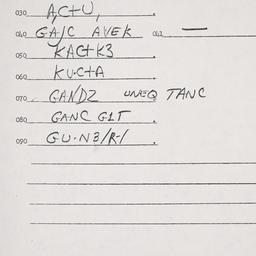 030 A,C+U, .
040 GA/C AVEK 043 —
050 KAC+K3 .
060 KU·C+A .
070 GANDZ UNEQ TANC
080 GANC G1T .
090 GU·N3/R-/ .